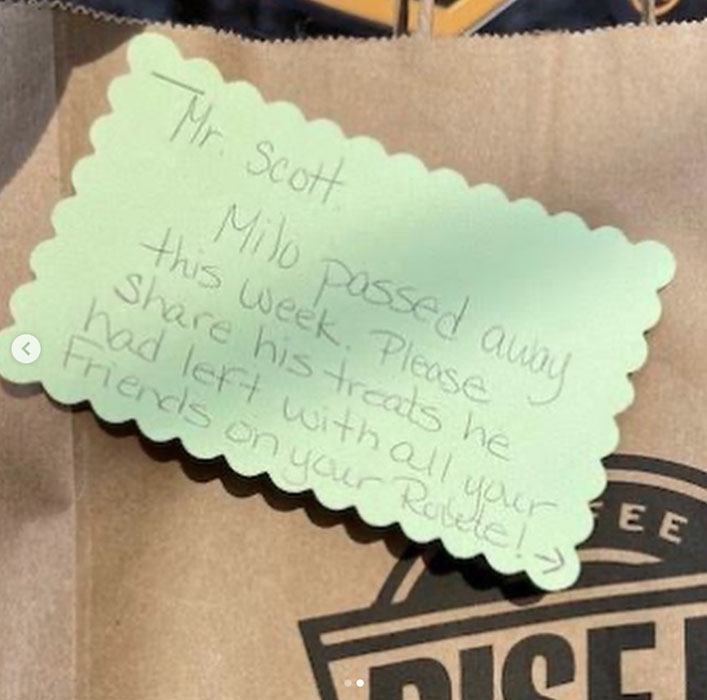 Mr. Scott.
Milo passed away
this week. Please
share his treats he
had left with all your
Friends on your Route! →
FEE
RISE